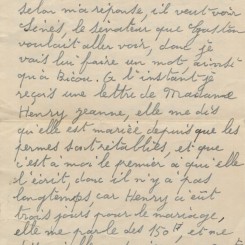 selon ma réponse, il veut voir
Sénès, le sénateur que Gaston
voulait aller voir, donc je
vais lui faire un mot ainsi
qu'à Bicou. A l'instant je
reçois une lettre de Madame
Henry Jeanne, elle me dis
qu'elle est mariée depuis que les
permes sont rétablies, et que
c'est à moi le premier a qui elle
l'écrit, donc il n'y a pas
longtemps, car Henry a eût
trois jours pour le mariage,
elle me parle des 150 et me